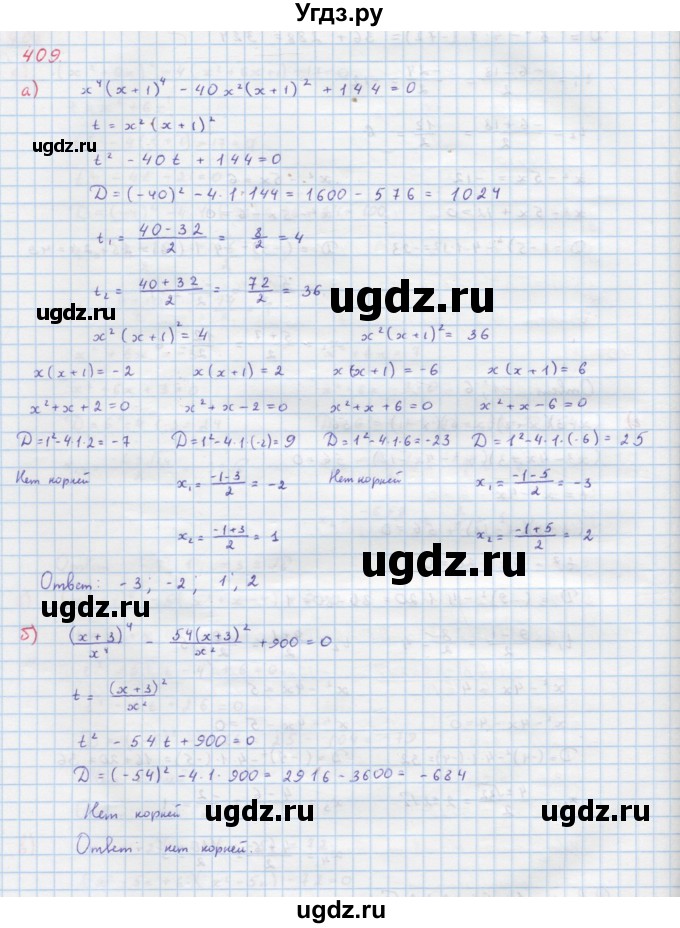 Угдз.ру
409.
а) x⁴(x+1)⁴ - 40x²(x+1)² + 144 = 0
ugdz.ru
t = x²(x+1)²
ugdz.ru
t² - 40t + 144 = 0
D = (-40)² - 4·1·144 = 1600 - 576 = 1024
t₁ = (40-32)/2 = 8/2 = 4
t₂ = (40+32)/2 = 72/2 = 36
ugdz.ru
ugdz.ru
x²(x+1)² = 4 x²(x+1)² = 36
x(x+1) = -2 x(x+1) = 2 x(x+1) = -6 x(x+1) = 6
x²+x+2=0 x²+x-2=0 x²+x+6=0 x²+x-6=0
D=1²-4·1·2=-7 D=1²-4·1·(-2)=9 D=1²-4·1·6=-23 D=1²-4·1·(-6)=25
Нет корней x₁ = (-1-3)/2 = -2 Нет корней x₁ = (-1-5)/2 = -3
x₂ = (-1+3)/2 = 1 x₂ = (-1+5)/2 = 2
ugdz.ru
Ответ: -3; -2; 1; 2
ugdz.ru
б) (x+3)⁴/x⁴ - 54(x+3)²/x² + 900 = 0
ugdz.ru
t = (x+3)²/x²
t² - 54t + 900 = 0
D = (-54)² - 4·1·900 = 2916 - 3600 = -684
Нет корней
ugdz.ru
ugdz.ru
Ответ: нет корней.
ugdz.ru